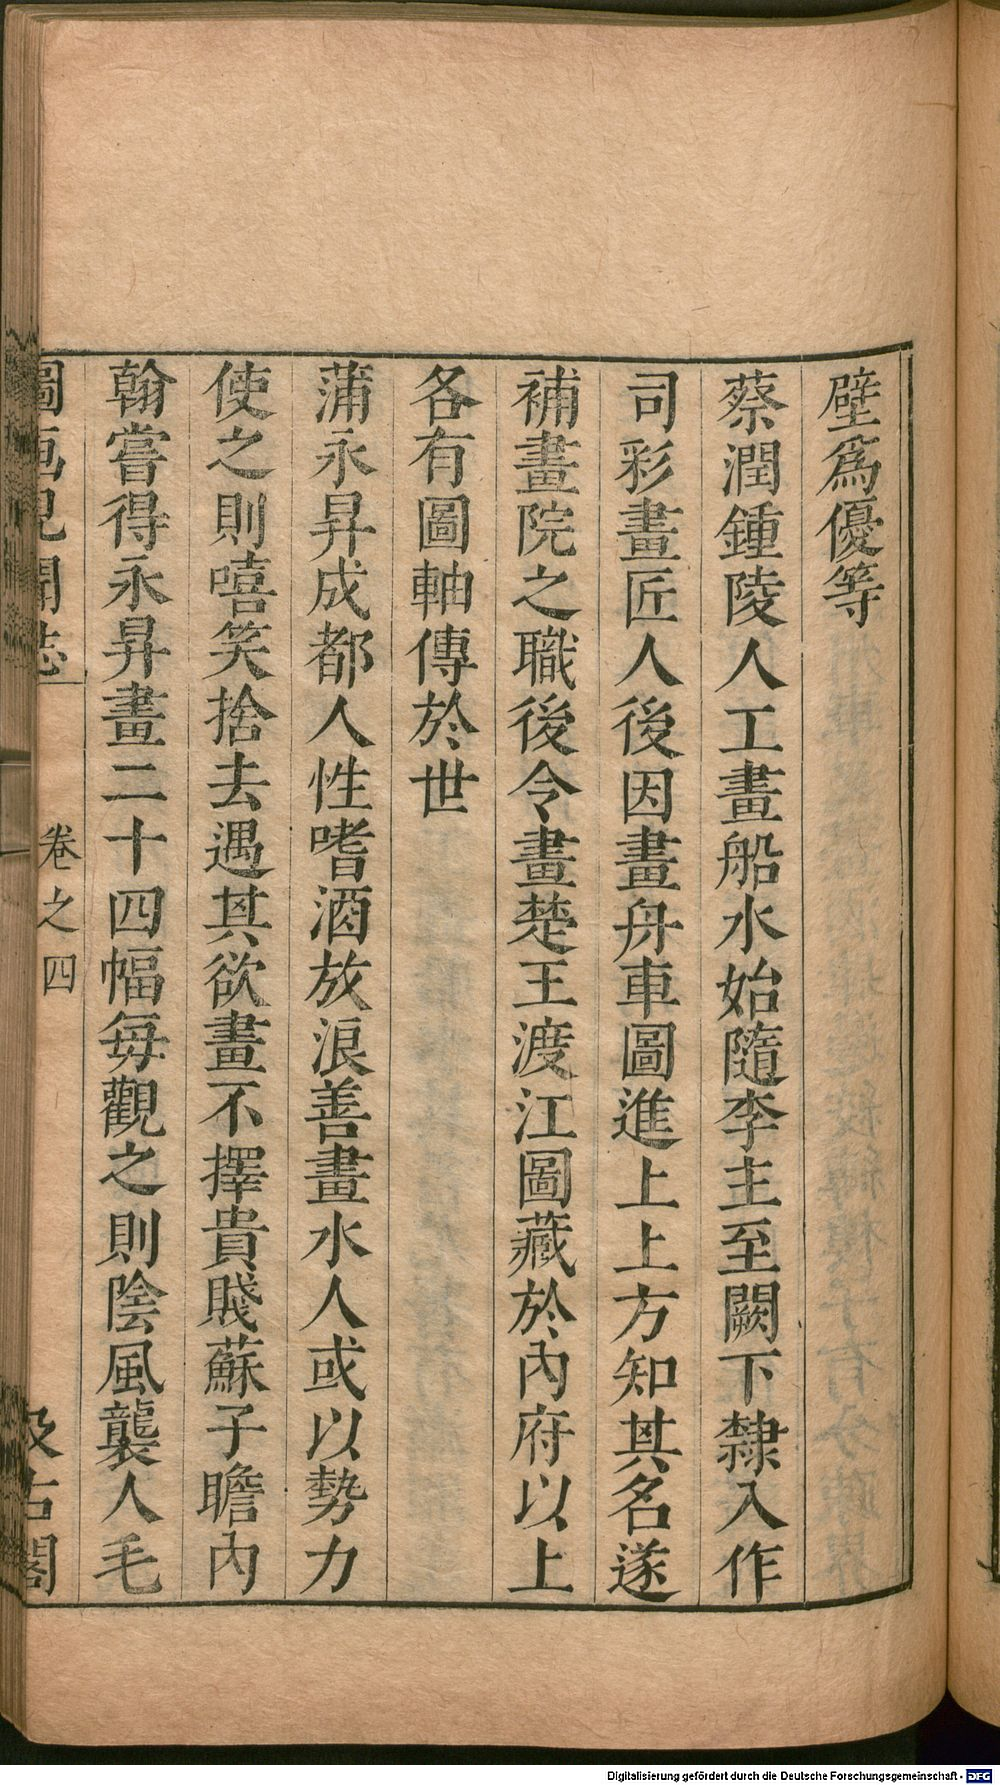 壁爲優等
蔡潤鍾陵人工畫船水始隨李主至闕下隸入作
司彩畫匠人後因畫舟車圖進上上方知其名遂
補畫院之職後令畫楚王渡江圖藏於內府以上
各有圖軸傳於世
蒲永昇成都人性嗜酒放浪善畫水人或以勢力
使之則嘻笑捨去遇其欲畫不擇貴賤蘇子瞻內
翰嘗得永昇畫二十四幅每觀之則陰風襲人毛
圖画見聞誌 卷之四 汲古閣
Digitalisierung gefördert durch die Deutsche Forschungsgemeinschaft - DFG